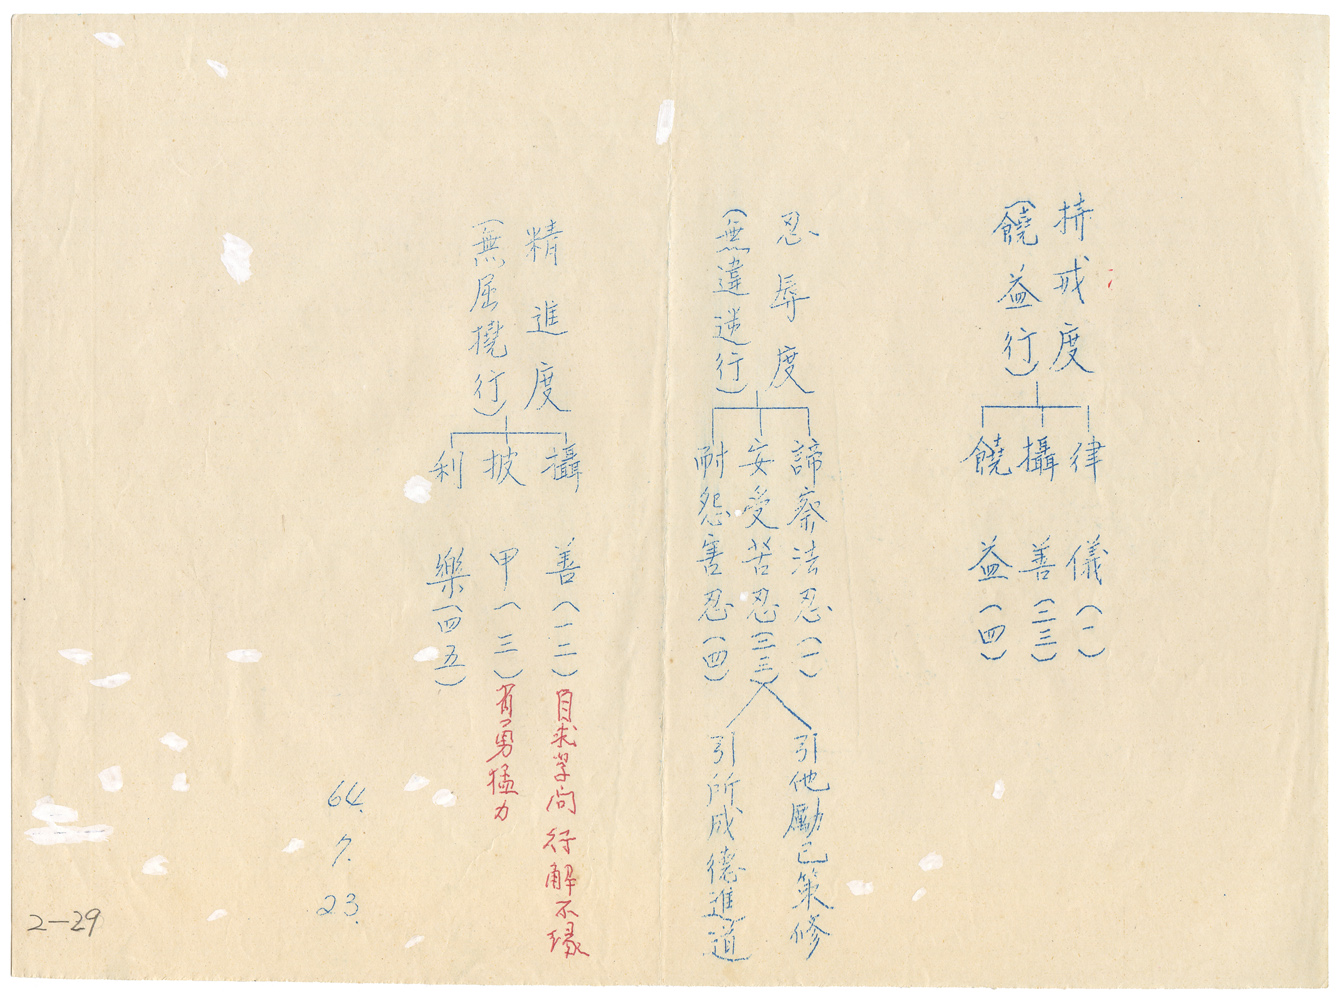 持戒度
(饒益行)
律儀(一)
攝善(二三)
饒益(四)
忍辱度
(無違逆行)
諦察法忍(一)
安受苦忍(二三)
耐怨害忍(四)
引他勵己策修
引所成德進道
精進度
(無屈撓行)
攝善(一二)
自求學问 行解不
披甲(一三)
有勇猛力
利樂(四五)
64.
7.
23.
2-29